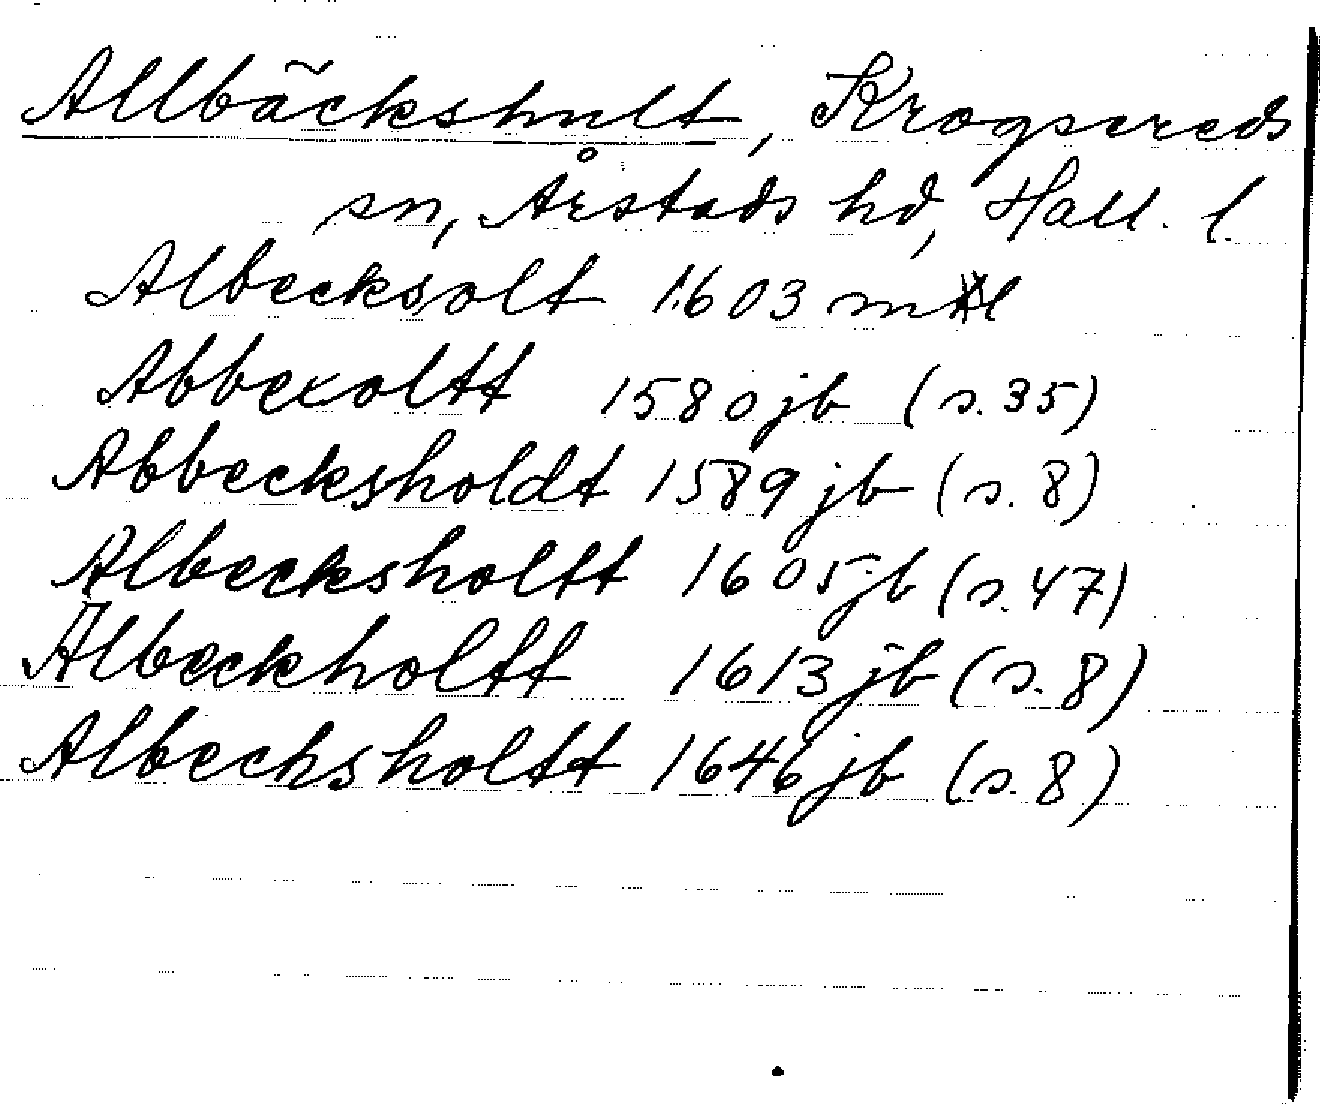 Allbäckshult, Krogsereds
sn, Årstads hd, Hall. l.
Albecksolt 1603 mtl
Abbexoltt 1580 jb (s. 35)
Abbecksholdt 1589 jb (s. 8)
Albecksholtt 1605 jb (s. 47)
Albeckholtt 1613 jb (s. 8)
Albechsholtt 1646 jb (s. 8)